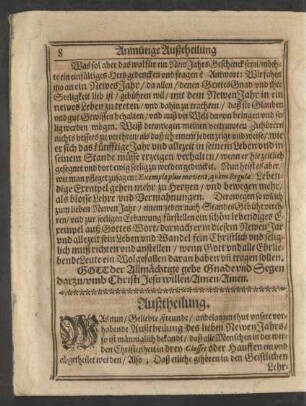 8 Anmütige Außtheilung
Was sol aber das wol für ein New Jahrs Geschenck sein/ möch-
te ein einfältiges Hertz gedencken vnd fragen? Antwort: Wir fahen
itzo an ein Newes Jahr/ da allen/ denen Gottes Gnad vnd ihre
Seeligkeit lieb ist/ gebühren wil/ mit dem Newen Jahr in ein
newes Leben zu treten/ vnd dahin zu trachten/ daß sie Glauben
vnd gut Gewissen behalten/ vnd auß der Welt davon bringen vnd se-
lig werden mögen. Weiß derowegen meinen vertrauten Zuhörern
nichts bessers zu verehren/ als daß ich einem jeden zeige vnd weise/ wie
er sich das künfftige Jahr vnd allezeit in seinem Leben vnd in
seinem Stande müsse erzeigen verhalten/ wenn er hie zeitlich
gesegnet vnd dort ewig seelig zu werden gedencket. Nun heist es aber/
wie man pfleget zusagen: Exempla plus movent, quàm Regula: Leben-
dige Exempel gehen mehr zu Hertzen/ vnd bewegen mehr/
als blosse Lehre vnd Vermahnungen. Derowegen so wil ich
zum lieben Newen Jahr/ einem jeden nach Standes Gebühr vereh-
ren/ vnd zur seeligen Erbawung fürstellen ein schön lebendiges E-
xempel auß Gottes Wort/ darnach er in diesem Newen Jar
vnd allezeit sein Leben vnd Wandel fein Christlich vnd selig-
lich muß richten vnd anstellen/ wenn Gott vnd alle Ehrlie-
bende Leute ein Wolgefallen daran haben vñ tragen sollen,
GOTT der Allmächtige gebe Gnade vnd Segen
darzu/ vmb Christi Jesu willen/ Amen/ Amen.
Außtheilung.
WAs nun/ Geliebte Freunde/ anbelangen thut vnsere vor-
habende Außtheilung des lieben Newen Jahrs/
so ist männiglich bekandt/ daß alle Menschen in der wer-
den Christenheit in drey Classes oder Hauffen ein vnd
abgetheilet werden/ Also/ Daß etliche gehören in den Geistlichen
Lehr-